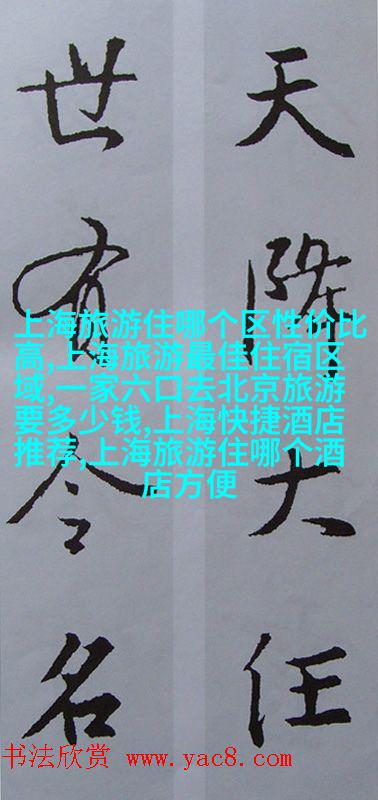 天降大任
世有令名
上海旅游住哪个区性价比
高,上海旅游最佳住宿区
域,一家六口去北京旅游
要多少钱,上海快捷酒店
推荐,上海旅游住哪个酒
店方便
书法欣赏 www.yac8.com